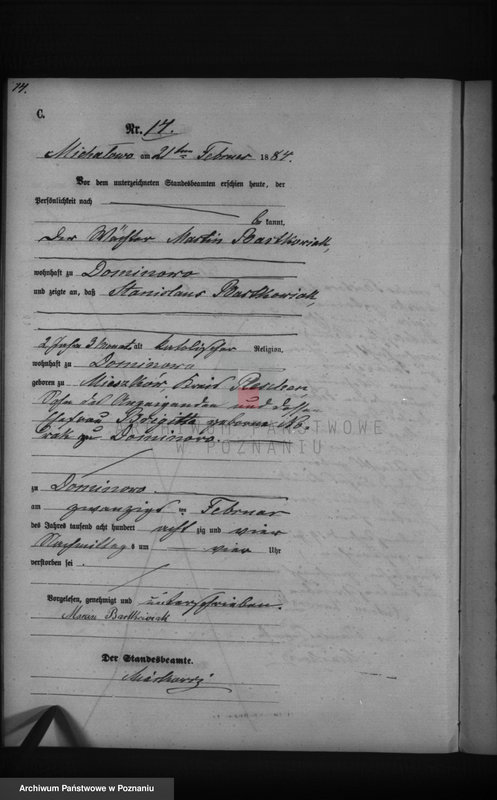 74.
C.
Nr. 17.
Michalowo am 21ten Februar 1884.
Vor dem unterzeichneten Standesbeamten erschien heute, der
Persönlichkeit nach
be kannt,
der Wächter Martin Bartkowiak,
wohnhaft zu Dominowo
und zeigte an, daß Stanislaus Bartkowiak,
2 Jahre 3 Monat alt katolischer Religion,
wohnhaft zu Dominowo
geboren zu Mieszkow Kreis Pleschen,
Sohn des Anzeigenden und dessen
Ehefrau Brigitta geborene
zu Dominowo
zu Dominowo
am zwanzigs ten Februar
des Jahres tausend acht hundert acht zig und vier
Nachmittag s um vier Uhr
verstorben sei.
Vorgelesen, genehmigt und unterschrieben.
Marcin Bartkowiak
Der Standesbeamte.
ARCHIWUM PAŃSTWOWE
W POZNANIU
Archiwum Państwowe w Poznaniu